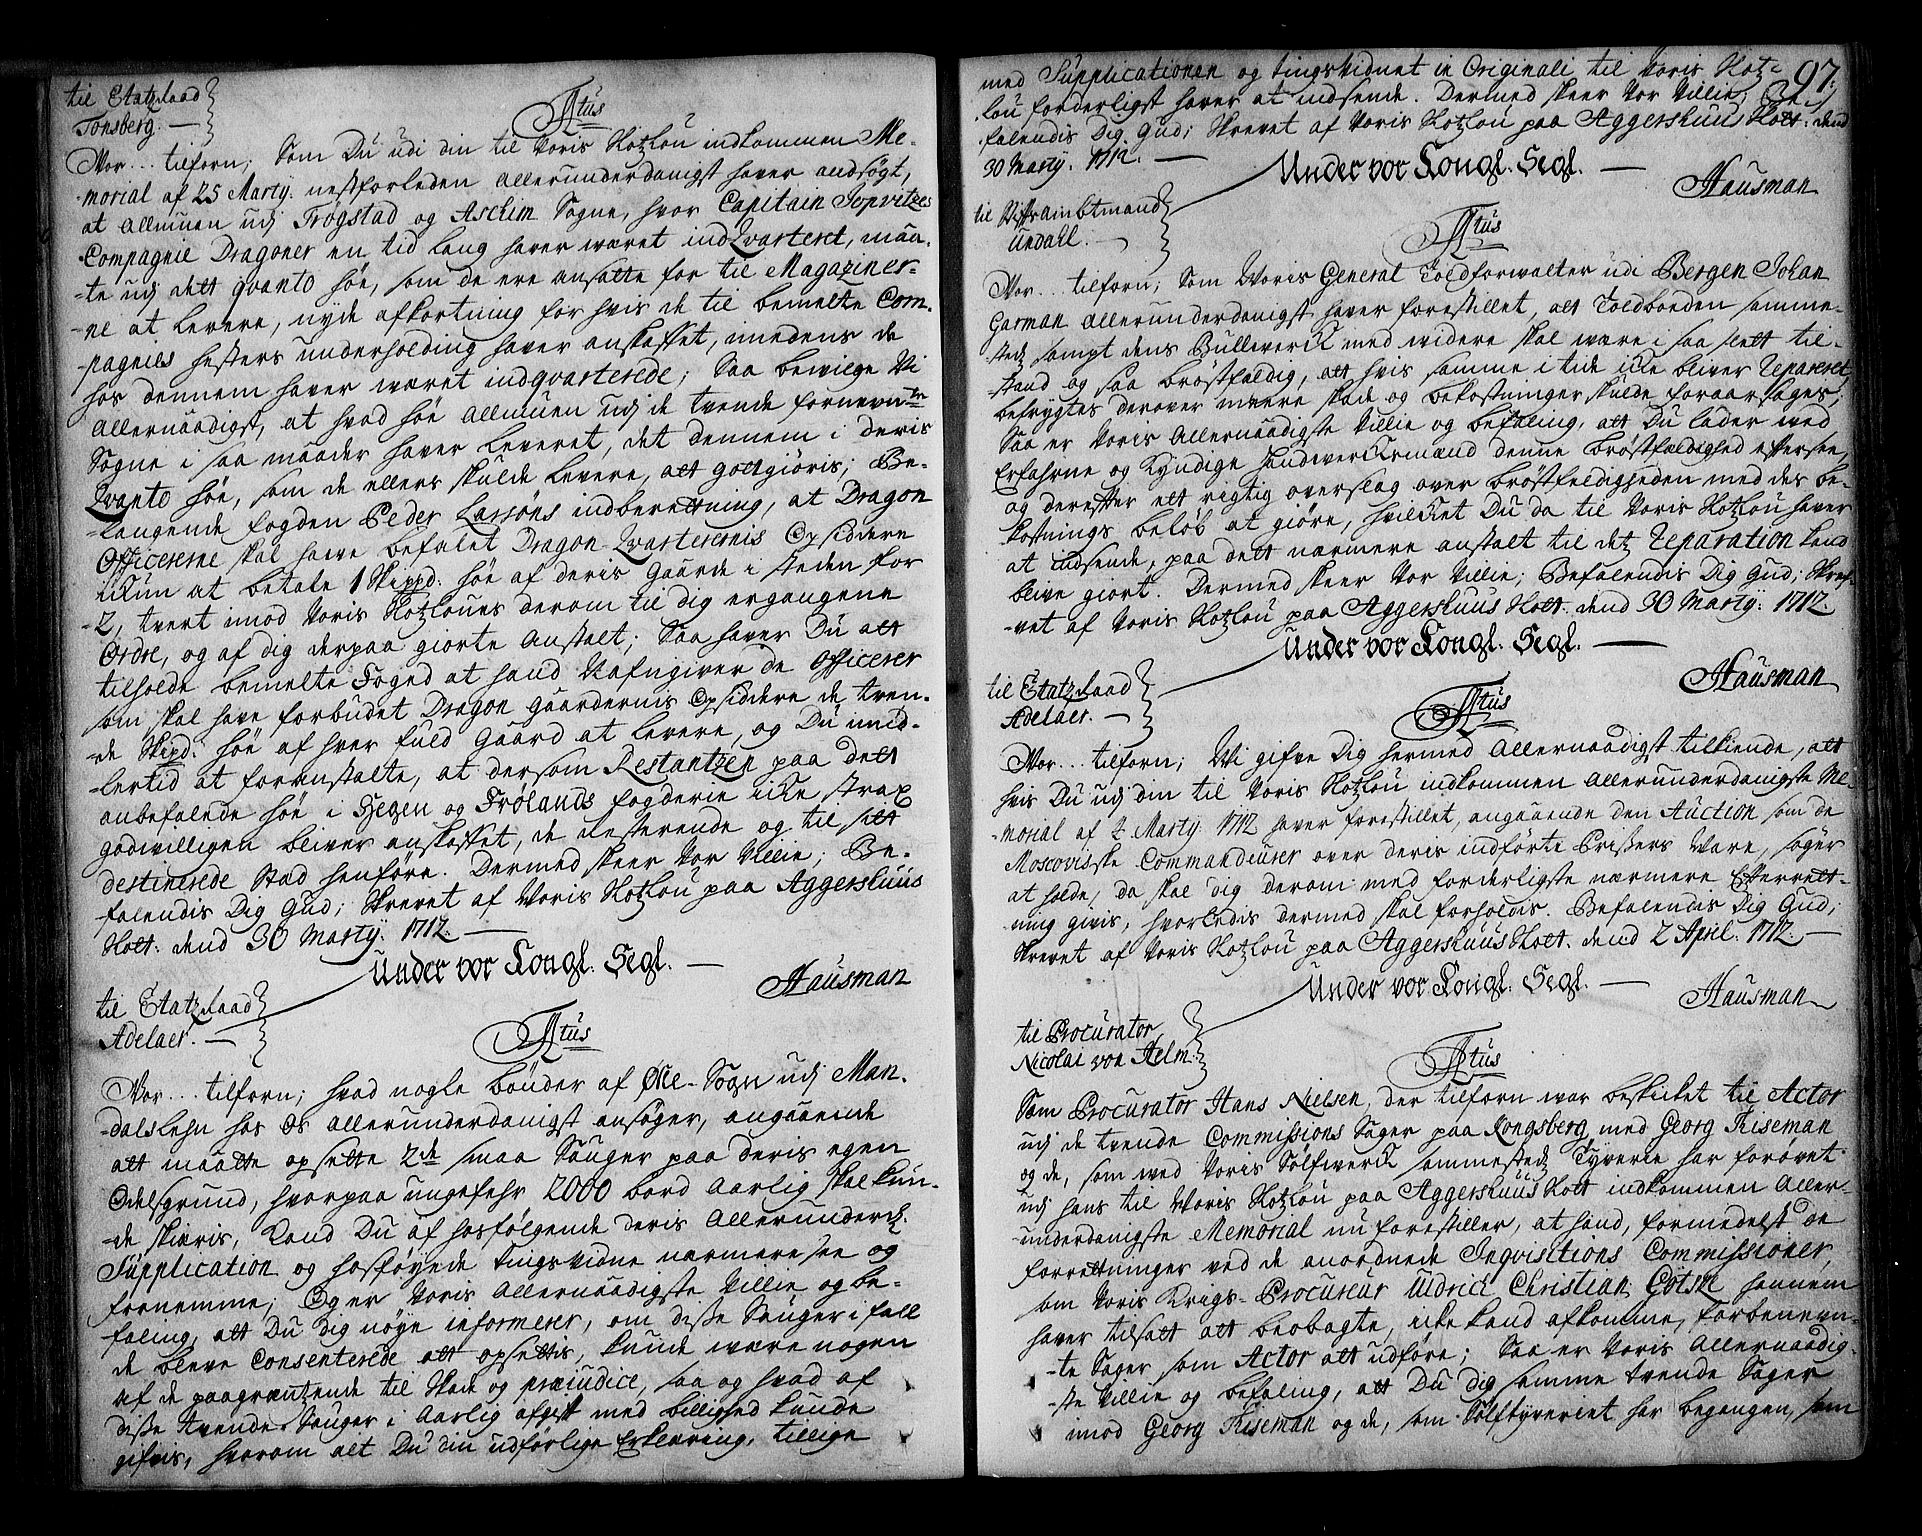 til Etatzraad
Tonsberg. —
Atus
Vor... tilforn; Som Du udi din til Voris Slotzlou indkommen Me-
-morial af 25 Marty nestforleden allerunderdanigst haver andsøgt,
at Allmuen udj Trøgstad og Aschim Sogne, hvor Capitain
Compagnie Dragoner en tid lang haver wæret indqvarteret, maa-
-te udj dett qvanto høe, som de ere ansatte for til Magaziner-
-ne at levere, nyde afkortning for hvis de til bemelte Com-
-pagnies hesters underholding haver anskaffet, imedens de
hos dennem haver wæret indqvarterede; Saa bewilge Vi
allernaadigst, at hvad høe Allmuen udj de tvende fornevnte
Sogne i saa maader haver leveret, det dennem i deris
Qvanto høe, som de ellers skulde levere, att gottgiøris; Be-
-langende fogden Peder Larsøns indberettning, at Dragon
Officererne skal have befalet Dragon-Qvarterernis Opsiddere
ikkun at betale 1 Skippd: høe af deris Gaarde i steden for
-2, tvert imod Voris Slotzloues derom til dig ergangene
Ordre, og af dig derpaa giorte Anstalt; Saa haver Du att
tilholde bemelte Foged at hand Nafngiver de Officerer
som skal have forbudet Dragon Gaardernis Opsiddere de tven-
-de Skipd: høe af hver fuld Gaard at levere, og Du imid-
-lertid at foranstalte, at dersom Restantzen paa dett
anbefalende høe i Heggen og Frølands fogderie icke strax
godwilligen bliver anskaffet, de resterende og til sitt
destinerede Stad henføre. Dermed skeer Vor Villie; Be-
-falendis Dig Gud; Skrevet af Voris Slotzlou paa Aggershuus
Slott. dend 30 Marty. 1712. —
Under vor Kongl. Segl. —
Hausman
til Etatzraad
Adelaer. —
Atus
Vor... tilforn; Hvad nogle bønder af Sogn udj Man-
-dals Lehn hos Os allerunderdanigst ansøger, angaaende
att maatte opsette 2de smaa Sauger paa deris egen
Odelsgrund, hvorpaa ungefehr 2000 bord Aarlig skal kun-
-de skiæris, kand Du af hosfølgende deris Allerunderd.
Supplication og hosføyede tingsvidne nærmere see og
fornemme; Og er Voris Allernaadigste Villie og be-
-faling, att Du dig nøye informerer, om disse Sauger i fall
de bleve Consenterede att opsettis, kunde være nogen
af de paagræntzende til Skade og præiudice, saa og hvad af
disse tvende Sauger i Aarlig afgift med billighed kunde
gifvis, hvorom alt Du din udførlige Erklerring, tillige
97.
med Supplicationen og tingsvidnet in Originali til Voris Slotz-
-lou forderligst haver at indsende. Dermed skeer Vor Villie; Be-
-falendis Dig Gud; Skrevet af Voris Slotzlou paa Aggershuus Slott. dend
30 Marty. 1712. —
Under vor Kongl. Segl. —
Hausman
til Vise Ambtmand
Undahl. —
Atus
Vor... tilforn; Som Voris General Toldforwalter udi Bergen Johan
Garman allerunderdanigst haver forestillet, att Toldboeden samme-
-sted sampt dens Bullverck med widere skal være i saa slett til-
-stand og saa brøstfeldig, att hvis samme i tide icke bliver Repareret
befrygtes derover mere skade og bekostninger skulde foraarsages;
Saa er Voris Allernaadigste Villie og befaling, att Du lader med
Erfahrne og Kyndige Handverksmænd denne brøstfeldighed efftersee,
og derefter ett rigtig overslag over brøstfeldigheden med des be-
-kostnings beløb at giøre, hvilcket Du da til Voris Slotzlou haver
at indsende, paa dett nærmere anstalt til detz Reparation kand
blive giort. Dermed skeer Vor Villie; Befalendis Dig Gud; Skref-
-vet af Voris Slotzlou paa Aggershuus Slott. dend 30 Marty: 1712.
Under vor Kongl. Segl. —
Hausman
til Etatzraad
Adelaer. —
Atus
Vor... tilforn; Vi gifve Dig hermed Allernaadigst tilkiende, att
hvis Du udj din til Voris Slotzlou indkommen allerunderdanigste Me-
-morial af 2 Marty. 1712 haver forestillet, angaaende den Auction, som de
Moscoviske Commandeurer over deris indførte Prißers Ware, søger
at holde, da skal dig derom med forderligste nærmere Efterrett-
-ning givis, hvorledis dermed skal forholdis. Befalendis Dig Gud;
Skrevet af Voris Slotzlou paa Aggershuus Slott. dend 2 April. 1712. —
Under vor Kongl. Segl. —
Hausman
til Procurator
Nicolai von Helm.
Atus
Som Procurator Hans Nielsen, der tilforn war beskicket til Actor
udj de tvende Commissions Sager paa Kongsberg, med Georg Kiseman
og de, som wed Voris Sølfverck sammestedz Tyverie har forøvet
udj hans til Voris Slotzlou paa Aggershuus Slott indkommen Aller-
-underdanigste Memorial nu forestiller, at hand, formedelst de
forrettninger ved de anordnede Inqvisitions Commissioner,
som Voris Krigs-Procureur Uldrich Christian Götske hannem
haver tilsatt att beobagte, icke kand afkomme, forbenevn-
-te Sager, som Actor att udføre; Saa er Voris Allernaadig-
-ste Villie og befaling, att Du dig samme tvende Sager
imod Georg Kiseman og de, som Sølftyveriet har begangen, som